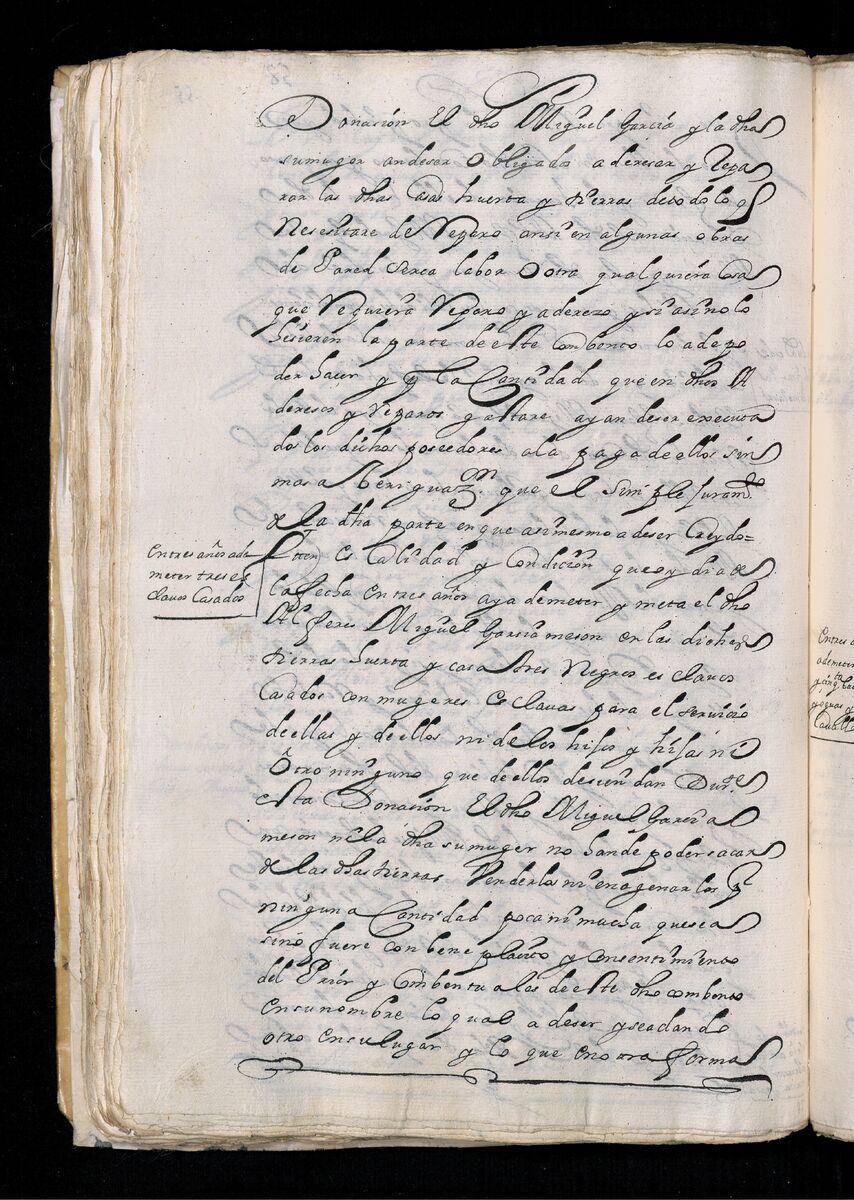 Donasion El dho Miguel Garcia y la dha
su muger an de ser obligados a deresar y repa
rar las dhas Casas huerta y tierras de todo lo q
Nesesitare de Reparo ansi en algunas obras
de Pared Serca labor O otra qualquiera Cosa
que Requiera Reparo y aderezo y si asi no lo
hisieren la parte de este Conbento lo a de po
der hacer y p la Cantidad que en dhos A
deresos y reparos gastare ayan de ser executa
dos los dichos poseedores a la paga de ellos sin
mas aberiguazon. que el Simple Juramto
de la dha parte en que asimesmo a de ser Creydo=
Ytten Es Calidad y Condicion que oy dia de
la fecha en tres años aya de meter y meta el dho
Alferes Miguel Garcia meson en las dichas
tierras huerta y casa tres Negros esclavos
Casados con mugeres Esclavas para el servicio
de ellas y de ellos ni de los hijos y hijas ni
Otro ninguno que de ellos desciendan Durte
esta Donasion El dho Miguel Garcia
meson ni la dha su muger no han de poder sacar
de las dhas tierras Venderlos ni enagenarlos p
ninguna Cantidad poca ni mucha que sea
sino fuere con bene placito y consentimiento
del Prior y Combentuales de este dho combento
en su nombre lo qual a de ser y sea dando
otro en su lugar y lo que en otra forma
En tres años a de
meter tres es
clavos Casados
En tres a
a de meter